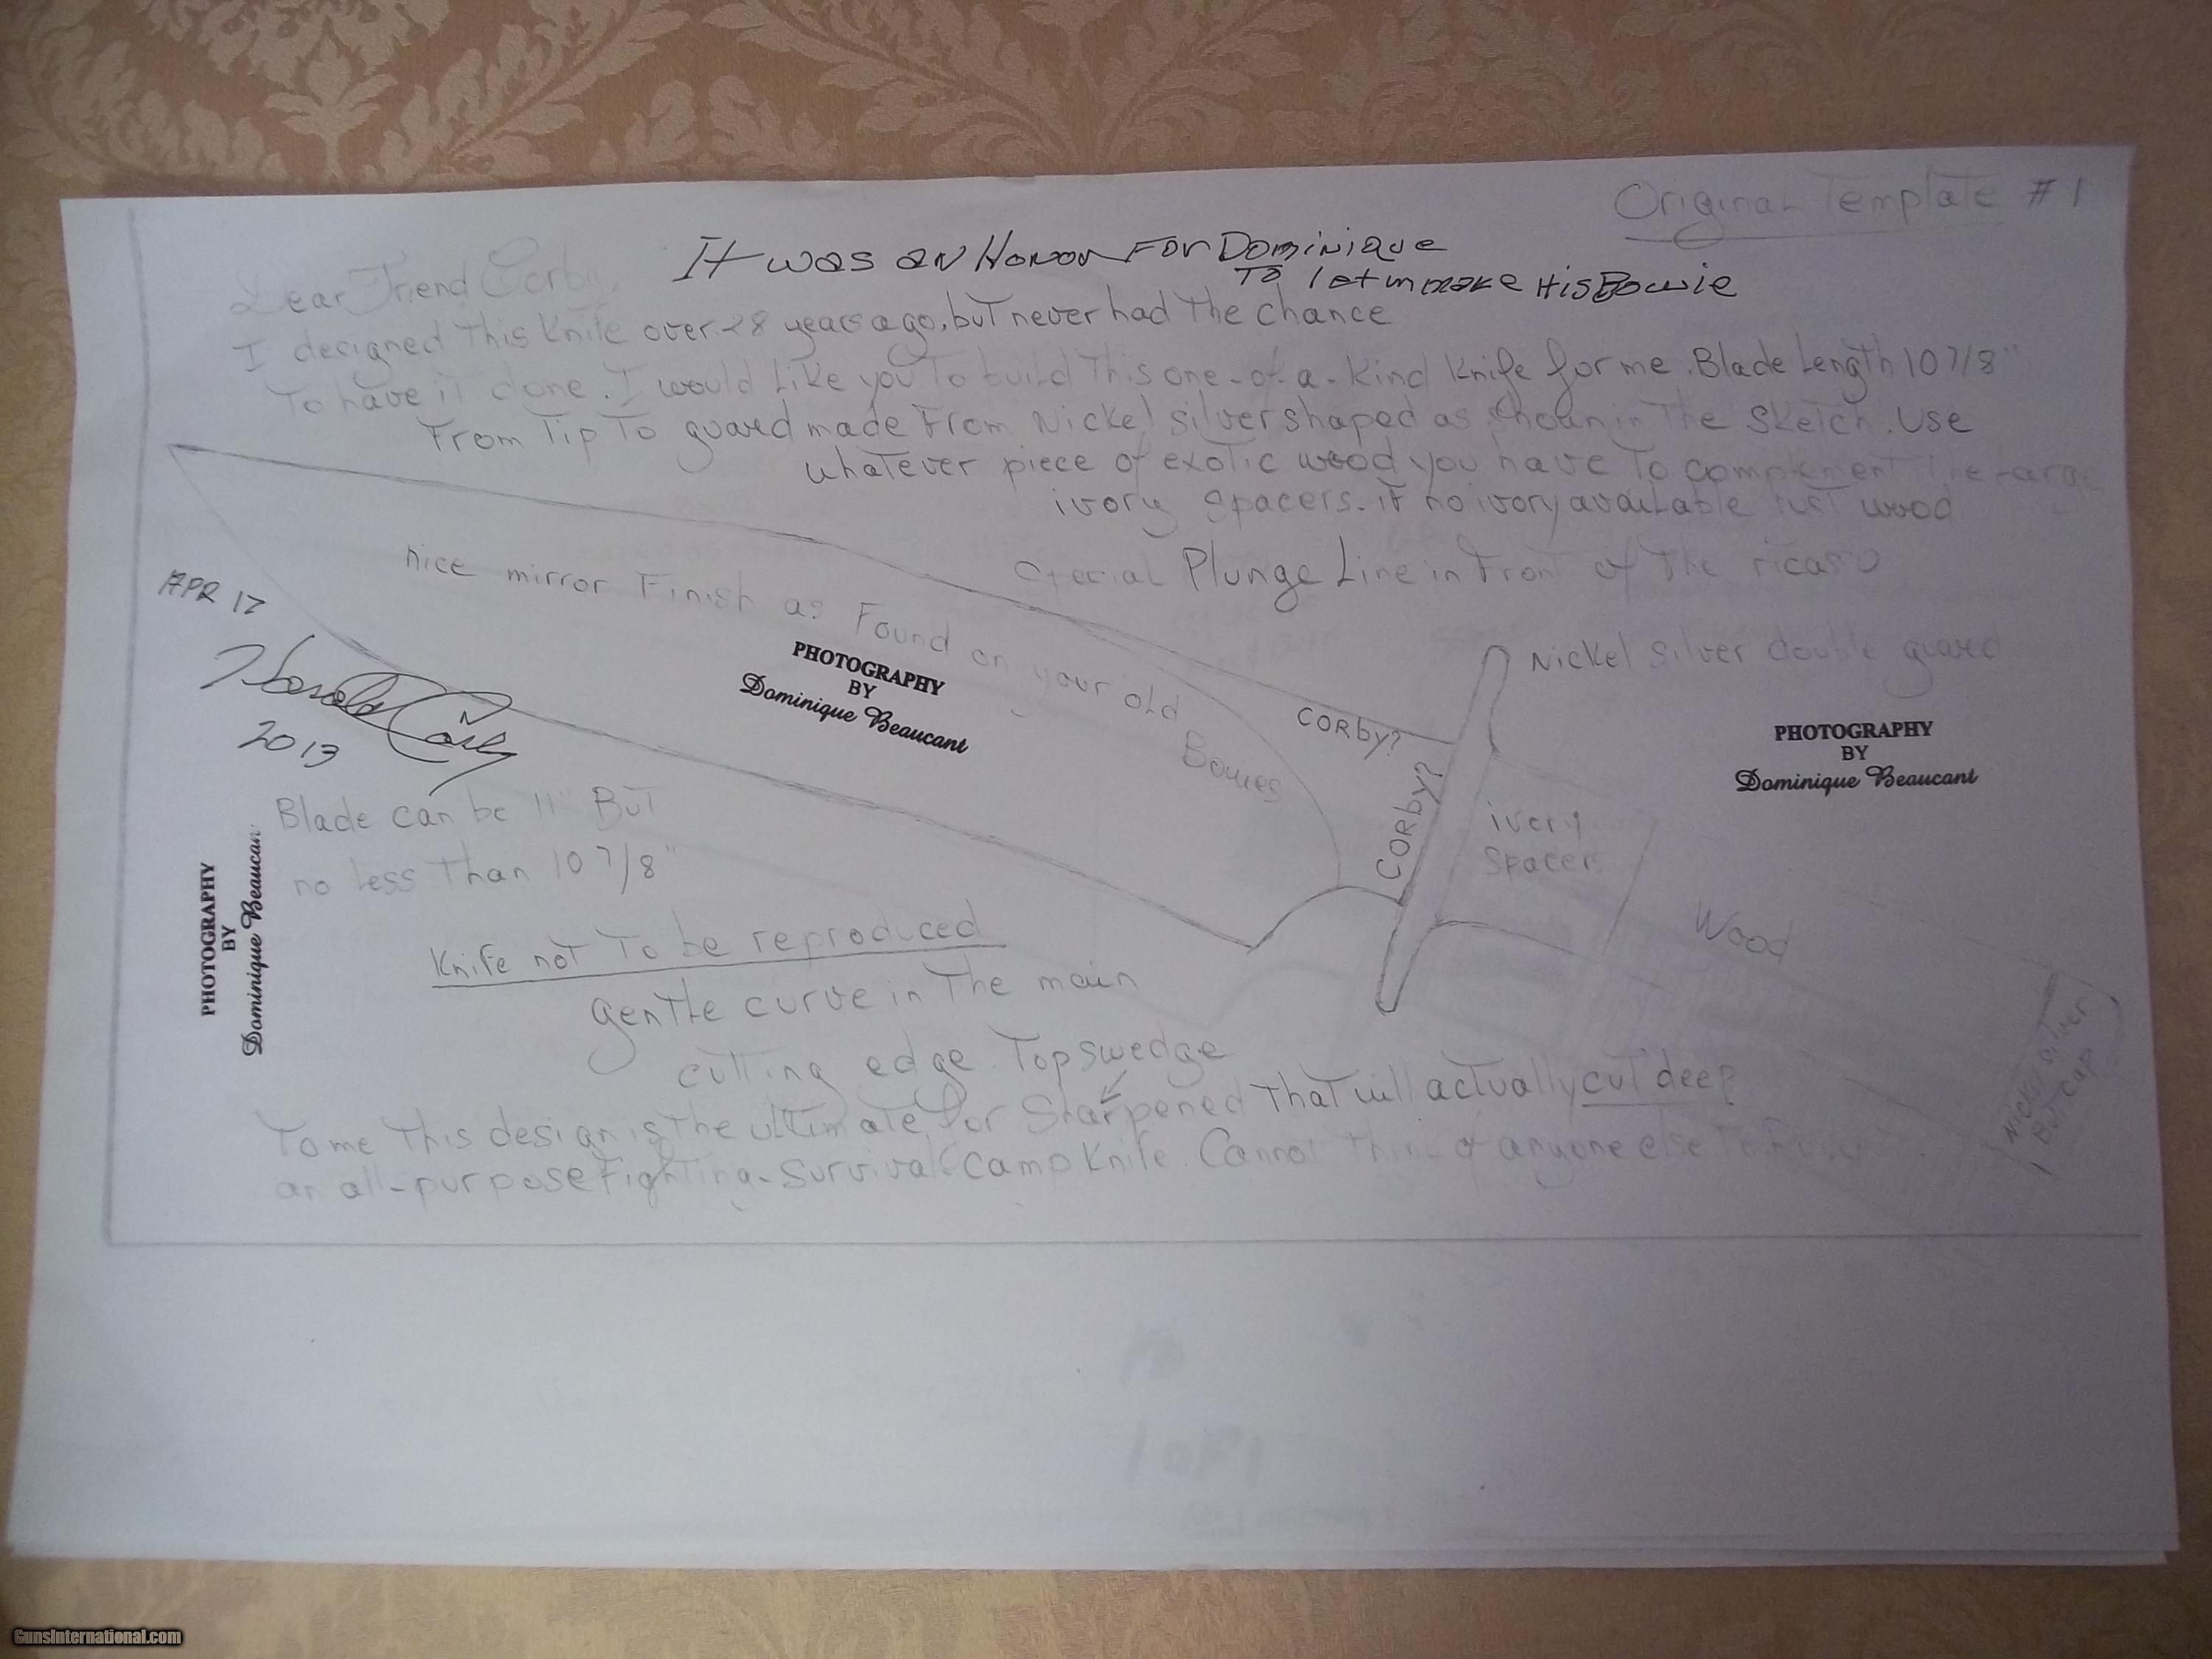 Original Template # 1
It was an Honor For Dominique
To let m make His Bowie
Dear Friend Corby,
I designed This Knife over 28 years ago, but never had The chance
To have it done. I would Like you To build This one-of-a-Kind Knife for me. Blade Length 10 7/8"
From Tip To guard made From Nickel silver shaped as shown in The Sketch. Use
whatever piece of exotic wood you have To complement The
ivory spacers. if no ivory available just wood
nice mirror Finish as Found on your old
Bowies
Special Plunge Line in Front of The ricaso
APR 17
Harold Corby
2013
PHOTOGRAPHY
BY
Dominique Beaucant
Corby?
Corby?
Nickel Silver double guard
PHOTOGRAPHY
BY
Dominique Beaucant
ivory
Spacers
Wood
Nickel Silver
But Cap
Blade can be 11" But
no Less Than 10 7/8"
PHOTOGRAPHY
BY
Dominique Beaucan
Knife not To be reproduced
gentle curve in The main
cutting edge. Top swedge
Sharpened That will actually cut deep
To me This design is The ultimate for
an all-purpose Fighting-Survival Camp Knife. Cannot Think of anyone else To
GunsInternational.com